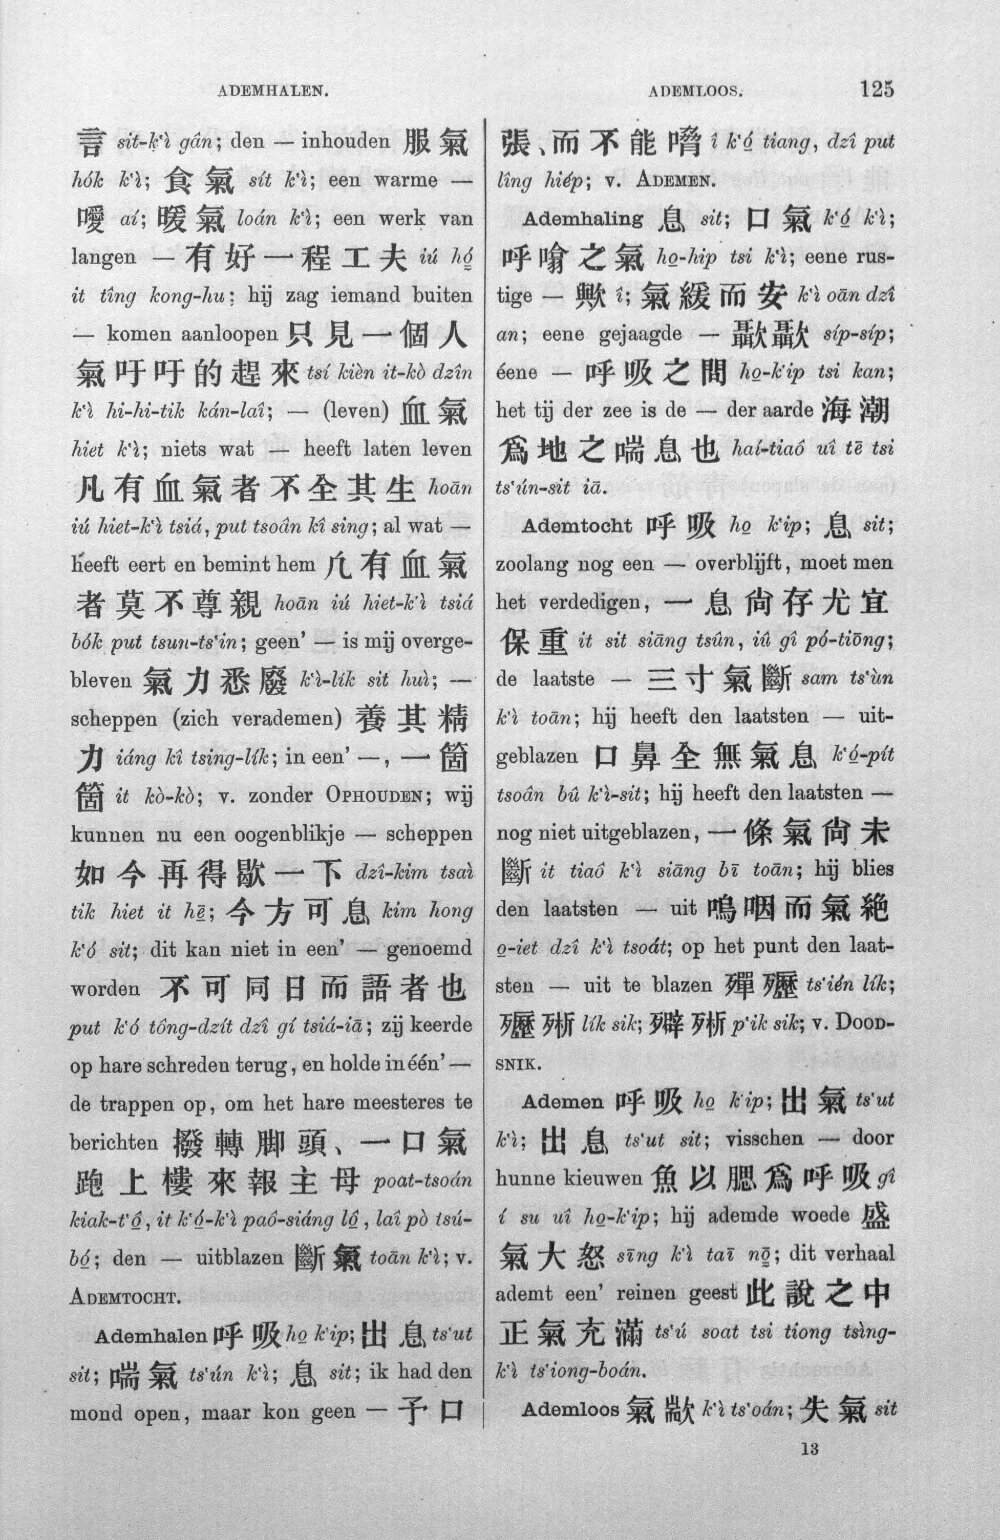 ADEMHALEN.
ADEMLOOS. 125
言 sit-k‘ì gân; den — inhouden 服氣
hók k‘ì; 食氣 sít k‘ì; een warme —
噯 aí; 暖氣 loán k‘ì; een werk van
langen — 有好一程工夫 iú hó̱
it tîng kong-hu; hij zag iemand buiten
— komen aanloopen 只見一個人
氣吁吁的趕來 tsí kièn it-kò dzîn
k‘ì hi-hi-tik kán-laî; — (leven) 血氣
hiet k‘ì; niets wat — heeft laten leven
凡有血氣者不全其生 hoān
iú hiet-k‘ì tsiá, put tsoân kî sing; al wat —
heeft eert en bemint hem 凡有血氣
者莫不尊親 hoān iú hiet-k‘ì tsiá
bók put tsun-ts‘in; geen’ — is mij overge-
bleven 氣力悉廢 k‘ì-lík sit huì; —
scheppen (zich verademen) 養其精
力 iáng kî tsing-lík; in een’ —, 一箇
箇 it kò-kò; v. zonder OPHOUDEN; wij
kunnen nu een oogenblikje — scheppen
如今再得歇一下 dzî-kim tsaì
tik hiet it hē̱; 今方可息 kim hong
k‘ó sit; dit kan niet in een’ — genoemd
worden 不可同日而語者也
put k‘ó tông-dzít dzî gí tsiá-iā; zij keerde
op hare schreden terug, en holde in één’ —
de trappen op, om het hare meesteres te
berichten 撥轉脚頭、一口氣
跑上樓來報主母 poat-tsoán
kiak-t‘ô̱, it k‘ó̱-k‘ì paô-siáng lô̱, laî pò tsú-
bó̱; den — uitblazen 斷氣 toān k‘ì; v.
ADEMTOCHT.
Ademhalen 呼吸 ho̱ k‘ip; 出息 ts‘ut
sit; 喘氣 ts‘ún k‘ì; 息 sit; ik had den
mond open, maar kon geen — 予口
張、而不能嗋 î k‘ó̱ tiang, dzî put
lîng hiép; v. ADEMEN.
Ademhaling 息 sit; 口氣 k‘ó̱ k‘ì;
呼噏之氣 ho̱-hip tsi k‘ì; eene rus-
tige — 歟 î; 氣緩而安 k‘ì oān dzî
an; eene gejaagde — 歙歙 síp-síp;
éene — 呼吸之間 ho̱-k‘ip tsi kan;
het tij der zee is de — der aarde 海潮
爲地之喘息也 haí-tiaô uî tē tsi
ts‘ún-sit iā.
Ademtocht 呼吸 ho̱ k‘ip; 息 sit;
zoolang nog een — overblijft, moet men
het verdedigen, 一息尙存尤宜
保重 it sit siāng tsûn, iû gî pó-tiōng;
de laatste — 三寸氣斷 sam ts‘ùn
k‘ì toān; hij heeft den laatsten — uit-
geblazen 口鼻全無氣息 k‘ó̱-pít
tsoân bû k‘ì-sit; hij heeft den laatsten —
nog niet uitgeblazen, 一條氣尙未
斷 it tiaô k‘ì siāng bī toān; hij blies
den laatsten — uit 嗚咽而氣絶
o̱-iet dzî k‘ì tsoát; op het punt den laat-
sten — uit te blazen 殫㱹 ts‘ién lík;
㱹㱤 lík sik; 㱤 p‘ik sik; v. DOOD-
SNIK.
Ademen 呼吸 ho̱ k‘ip; 出氣 ts‘ut
k‘ì; 出息 ts‘ut sit; visschen — door
hunne kieuwen 魚以腮爲呼吸 gî
í su uî ho̱-k‘ip; hij ademde woede 盛
氣大怒 sīng k‘ì taī nō̱; dit verhaal
ademt een’ reinen geest 此說之中
正氣充滿 ts‘ú soat tsi tiong tsìng-
k‘ì ts‘iong-boán.
Ademloos 氣歂 k‘ì ts‘oán; 失氣 sit
13